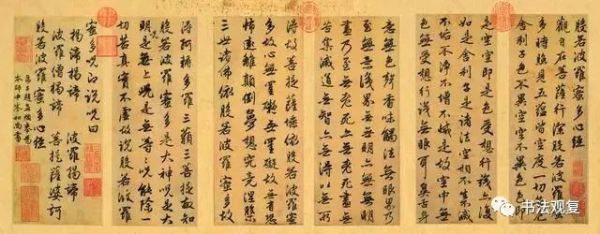 般若波羅蜜多心經
觀自在菩薩行深般若波羅蜜
多時照見五蘊皆空度一切苦厄
舍利子色不異空空不異色色即
是空空即是色受想行識亦復
如是舍利子是諸法空相不生不滅
不垢不淨不增不減是故空中無
色無受想行識無眼耳鼻舌身
意無色聲香味觸法無眼界乃
至無意識界無無明亦無無明
盡乃至無老死亦無老死盡無
苦集滅道無智亦無得以無所
得故菩提薩埵依般若波羅蜜
多故心無罣礙無罣礙故無有恐
怖遠離顛倒夢想究竟涅槃
三世諸佛依般若波羅蜜多故
得阿耨多羅三藐三菩提故知
般若波羅蜜多是大神咒是大
明咒是無上咒是無等等咒能除一
切苦真實不虛故說般若波羅
蜜多咒即說咒曰
揭諦揭諦 波羅揭諦
波羅僧揭諦 菩提薩婆訶
弟子趙孟頫奉為
本師中峯和尚書
书法观复